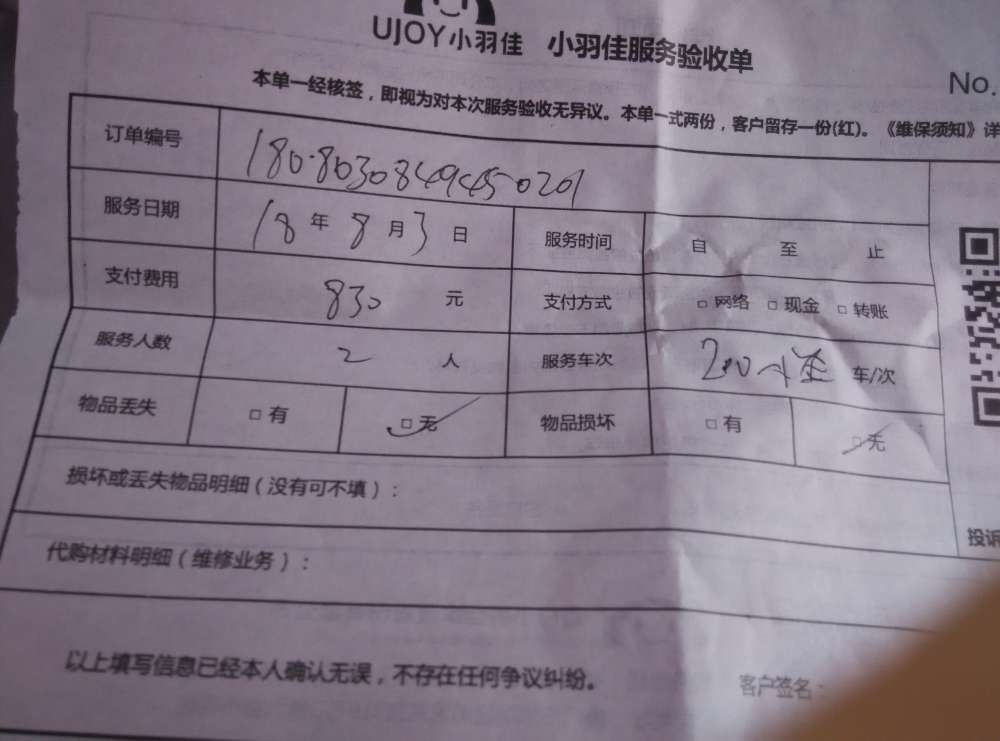 UJOY小羽佳 小羽佳服务验收单
No.
本单一经核签，即视为对本次服务验收无异议。本单一式两份，客户留存一份(红)。《维保须知》详
订单编号 1808030849450201
服务日期 18年8月3日 服务时间 自 至 止
支付费用 830 元 支付方式 □网络 □现金 □转账
服务人数 2 人 服务车次 车/次
物品丢失 □有 □无 物品损坏 □有 □无
损坏或丢失物品明细（没有可不填）：
投诉
代购材料明细（维修业务）：
以上填写信息已经本人确认无误，不存在任何争议纠纷。
客户签名：